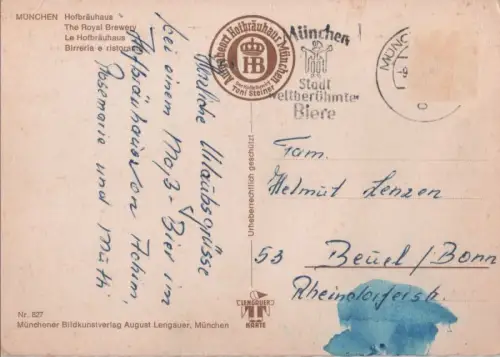 MÜNCHEN Hofbräuhaus
The Royal Brewery
Le Hofbräuhaus
Birreria e ristora
Ausgebucht Hofbräuhaus München
HB
Toni Steiner
München
Stadt
weltberühmter
Biere
MÜNC
Herzliche Urlaubsgrüsse
bei einem Maß-Bier im
Hofbräuhaus von Achim,
Rosemarie und Mutti
Urheberrechtlich geschützt
Fam.
Helmut Lenzen
53 Beuel/Bonn
Rheindorferstr.
LENGAUER
KARTE
Nr. 827
Münchener Bildkunstverlag August Lengauer, München